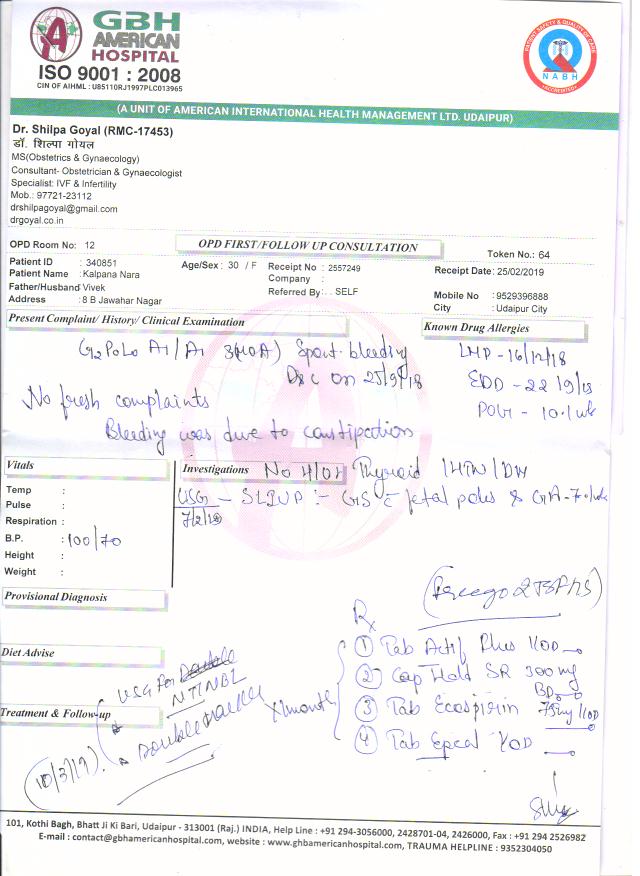 GBH
AMERICAN
HOSPITAL
ISO 9001 : 2008
CIN OF AIHML : U85110RJ1997PLC013965
PATIENT SAFETY & QUALITY OF CARE
NABH
ACCREDITED
(A UNIT OF AMERICAN INTERNATIONAL HEALTH MANAGEMENT LTD. UDAIPUR)
Dr. Shilpa Goyal (RMC-17453)
डॉ. शिल्पा गोयल
MS(Obstetrics & Gynaecology)
Consultant- Obstetrician & Gynaecologist
Specialist: IVF & Infertility
Mob.: 97721-23112
drshilpagoyal@gmail.com
drgoyal.co.in
OPD Room No: 12
OPD FIRST/FOLLOW UP CONSULTATION
Token No.: 64
Patient ID : 340851
Age/Sex : 30 / F Receipt No : 2557249
Receipt Date: 25/02/2019
Patient Name : Kalpana Nara
Company :
Father/Husband Vivek
Referred By : . . SELF
Mobile No : 9529396888
Address : 8 B Jawahar Nagar
City : Udaipur City
Present Complaint/ History/ Clinical Examination
Known Drug Allergies
G2P0L0 A1/A1 3MOA) Spont. bleeding
LMP - 16/12/18
D&C on 25/9/18
EDD - 22/9/19
No fresh complaints
POG - 10.1 wk
Bleeding was due to constipation
Vitals
Investigations
No H/O Thyroid /HTN/DM
USG - SLIUP :- GS c fetal poles & GA-7
7/2/19
Temp :
Pulse :
Respiration :
B.P. : 100/70
Height :
Weight :
Provisional Diagnosis
Diet Advise
Treatment & Follow-up
USG For
NT/NBL
Double Marker
10/3/19)
x 1 month
Rx
① Tab Actif Plus 1OD
② Cap Hald SR 300mg
BD
③ Tab Ecospirin 75mg 1OD
④ Tab Epcal 1OD
101, Kothi Bagh, Bhatt Ji Ki Bari, Udaipur - 313001 (Raj.) INDIA, Help Line : +91 294-3056000, 2428701-04, 2426000, Fax : +91 294 2526982
E-mail : contact@gbhamericanhospital.com, website : www.gbhamericanhospital.com, TRAUMA HELPLINE : 9352304050